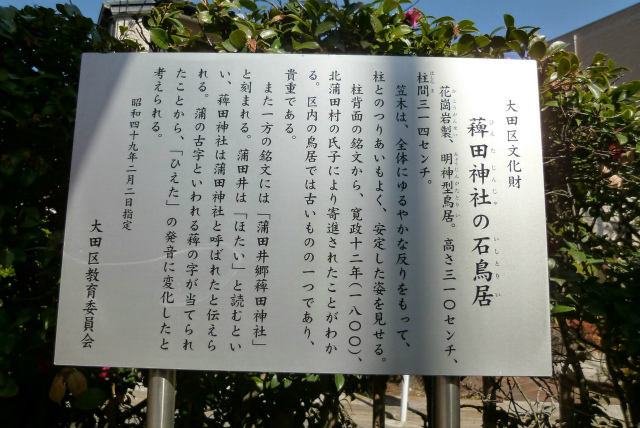 大田区文化財
薭田神社の石鳥居
ひえたじんじゃ
いしとりい
花崗岩製、明神型鳥居。高さ三一〇センチ、
かこうがんせい
みょうじんがたとりい
柱間三一四センチ。
はしらま
笠木は、全体にゆるやかな反りをもって、
柱とのつりあいもよく、安定した姿を見せる。
柱背面の銘文から、寛政十二年(一八〇〇)、
北蒲田村の氏子により寄進されたことがわか
る。区内の鳥居では古いものの一つであり、
貴重である。
また一方の銘文には「蒲田井郷薭田神社」
と刻まれる。蒲田井は「ほたい」と読むとい
い、薭田神社は蒲田神社と呼ばれたと伝えら
れる。蒲の古字といわれる薭の字が当てられ
たことから、「ひえた」の発音に変化したと
考えられる。
昭和四十九年二月二日指定
大田区教育委員会